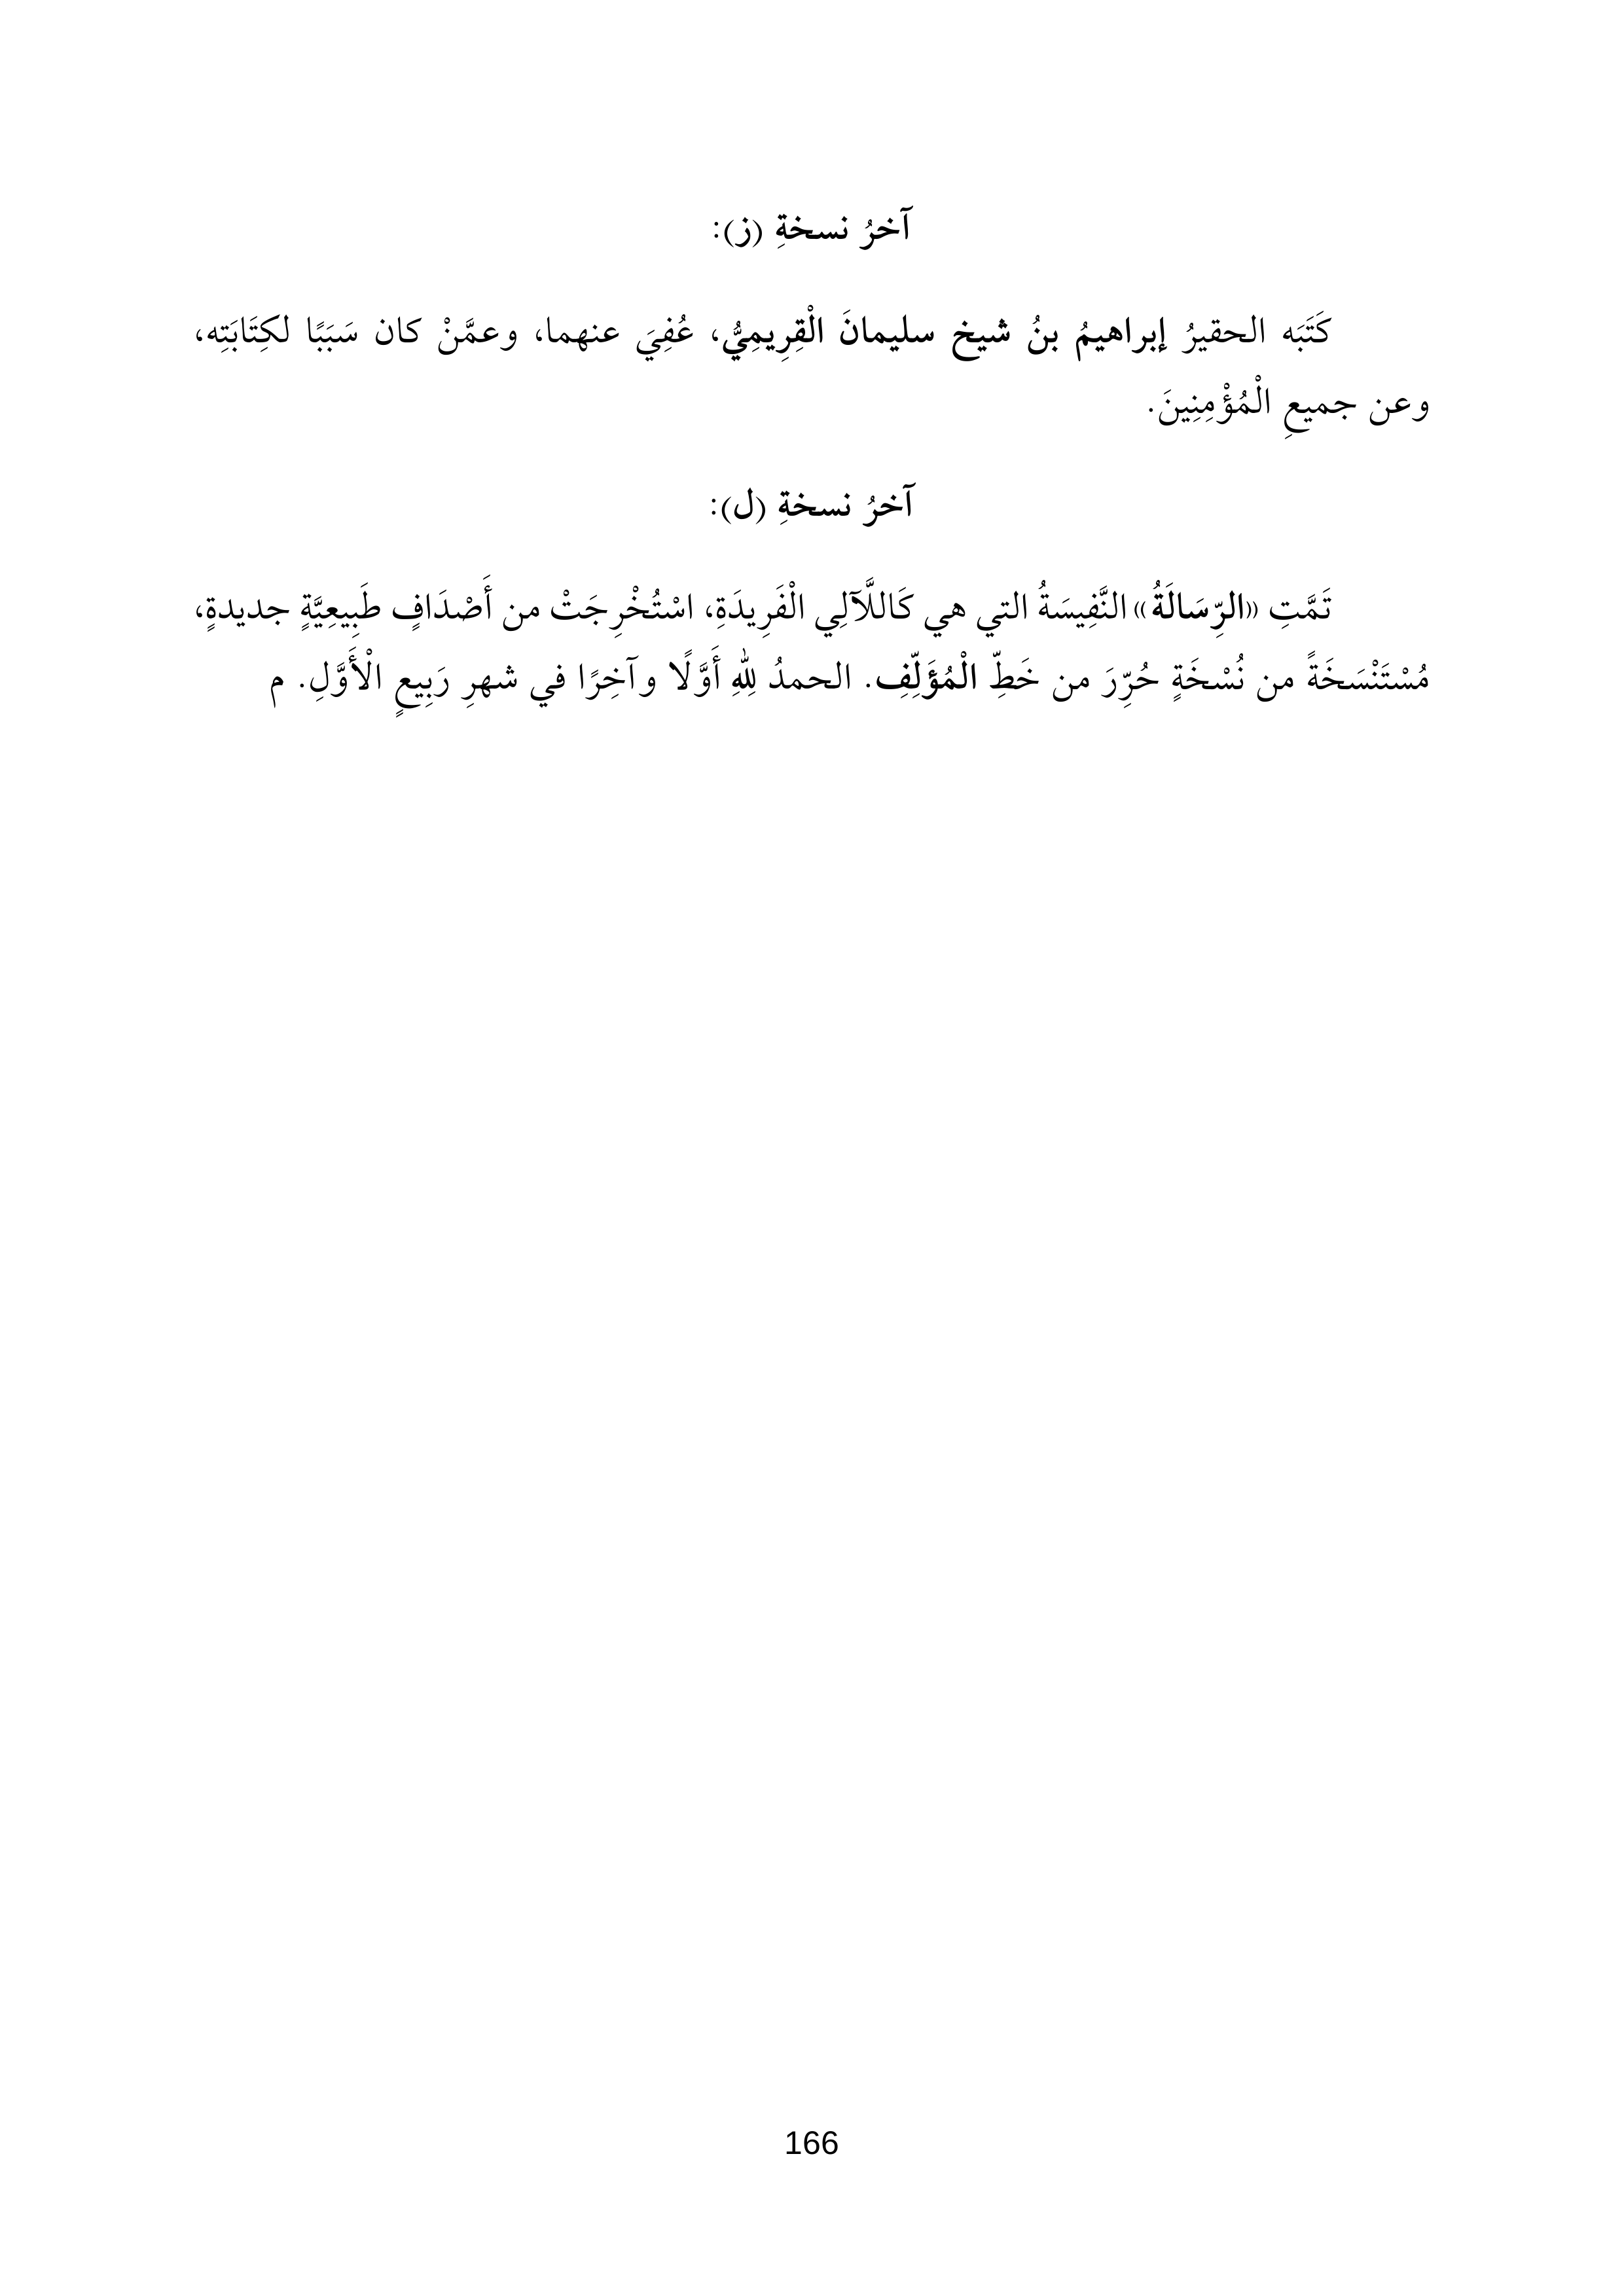 آخرُ نسخةِ (ز):
كَتَبَه الحقيرُ إبراهيمُ بنُ شيخ سليمانَ الْقِرِيمِيُّ، عُفِيَ عنهما، وعمَّنْ كان سَبَبًا لكِتَابَتِه،
وعن جميعِ الْمُؤْمِنِينَ.
آخرُ نسخةِ (ل):
تَمَّتِ «الرِّسَالَةُ» النَّفِيسَةُ التي هي كَاللَّآلِي الْفَرِيدَةِ، اسْتُخْرِجَتْ من أَصْدَافٍ طَبِيعِيَّةٍ جديدةٍ،
مُسْتَنْسَخَةً من نُسْخَةٍ حُرِّرَ من خَطِّ الْمُؤَلِّفِ. الحمدُ لِلّٰهِ أَوَّلًا وآخِرًا في شهرِ رَبِيعٍ الْأَوَّلِ. م
166